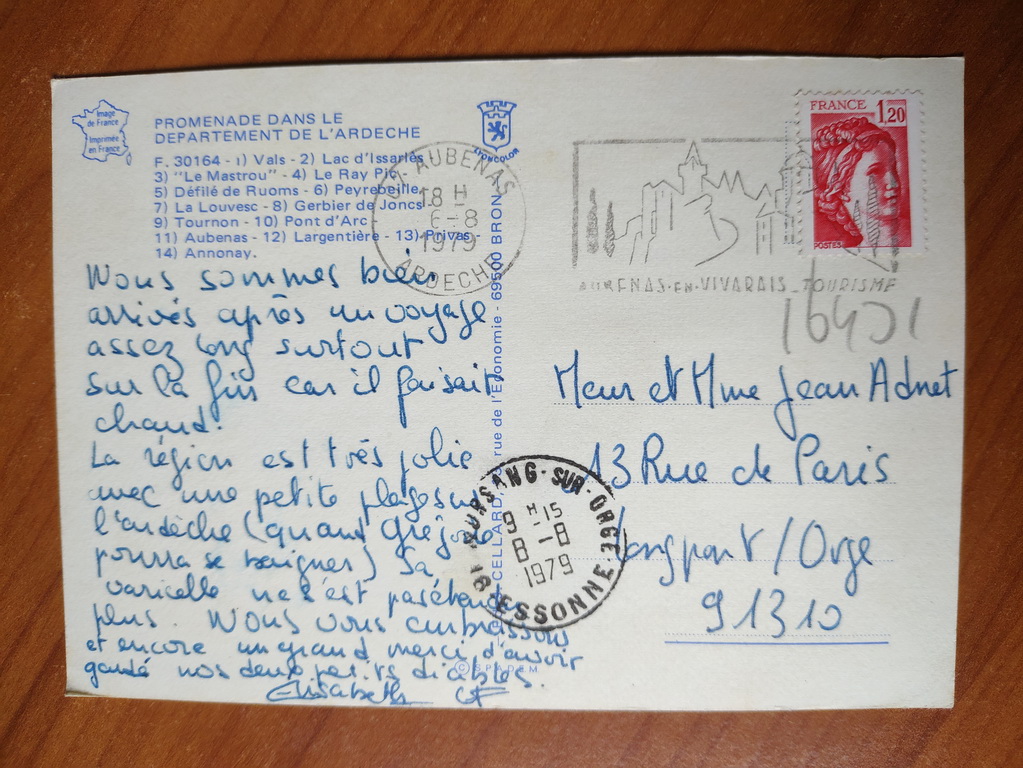 Image
de France
Imprimée
en France
PROMENADE DANS LE
DEPARTEMENT DE L'ARDECHE
F. 30164 - 1) Vals - 2) Lac d'Issarlès
3) "Le Mastrou" - 4) Le Ray Pic
5) Défilé de Ruoms - 6) Peyrebeille
7) La Louvesc - 8) Gerbier de Joncs
9) Tournon - 10) Pont d'Arc
11) Aubenas - 12) Largentière - 13) Privas -
14) Annonay.
LYONCOLOR
AUBENAS
18 H
6-8
1979
ARDECHE
AUBENAS-EN-VIVARAIS-TOURISME
FRANCE
1,20
POSTES
Nous sommes bien
arrivés après un voyage
assez long surtout
sur la fin car il faisait
chaud.
La région est très jolie
avec une petite plage sur
l'ardèche (quand Grégoire
pourra se baigner) Sa
varicelle ne s'est pas étendue
plus. Nous vous embrassons
et encore un grand merci d'avoir
gardé nos deux petits diables.
Elisabeth
CELLARD, rue de l'Economie - 69500 BRON
© SPADEM
Meur et Mme Jean Adnet
13 Rue de Paris
Longpont / Orge
91310
SUR-ORGE
9 H 15
8-8
1979
91 ESSONNE